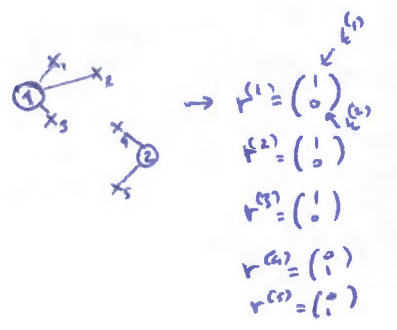 x₁
x₂
1
x₃
x₄
2
x₅
→ r⁽¹⁾ = (1 0)
k⁽¹⁾
k⁽²⁾
r⁽²⁾ = (1 0)
r⁽³⁾ = (1 0)
r⁽⁴⁾ = (0 1)
r⁽⁵⁾ = (0 1)